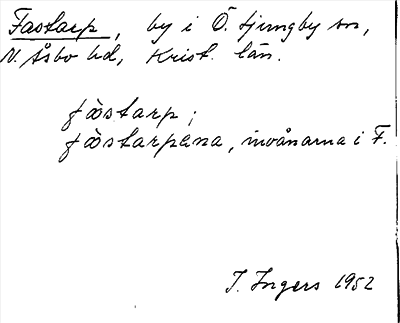 Fastarp, by i Ö. Ljungby sn,
N. Åsbo hd, Krist. län.
fàstarp;
fàstarpana, invånarna i F.
I. Ingers 1952